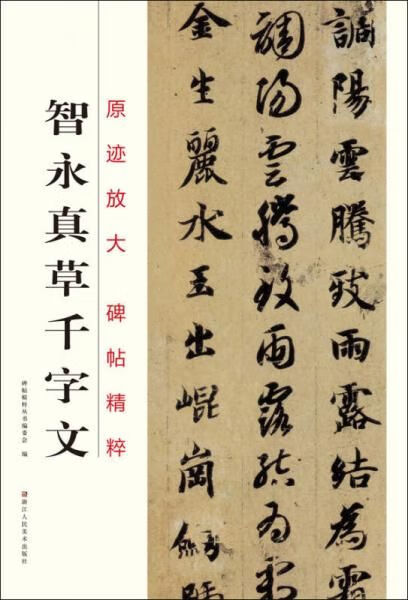 調陽雲騰致雨露結為霜
調陽雲騰致雨露結為霜
金生麗水玉出崐崗
原迹放大 碑帖精粹
智永真草千字文
碑帖精粹丛书编委会 编
浙江人民美术出版社